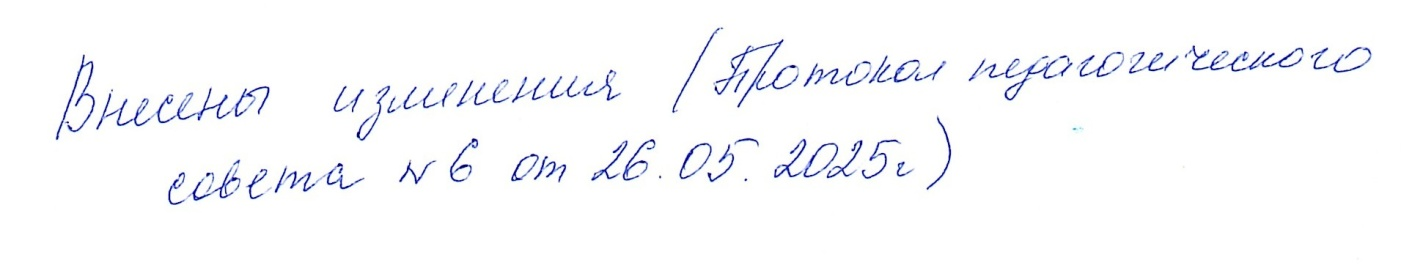 Внесены изменения (Протокол педагогического
совета № 6 от 26.05.2025г)